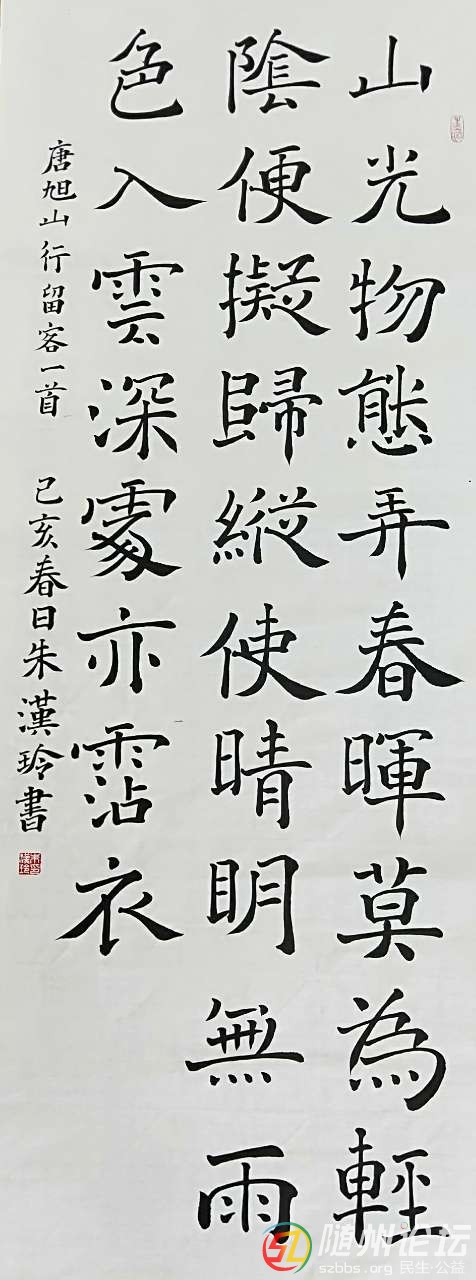 山光物態弄春暉莫為輕
陰便擬歸縱使晴明無雨
色入雲深處亦霑衣
唐旭山行留客一首 己亥春日朱漢玲書
随州论坛
szbbs.org 民生·公益